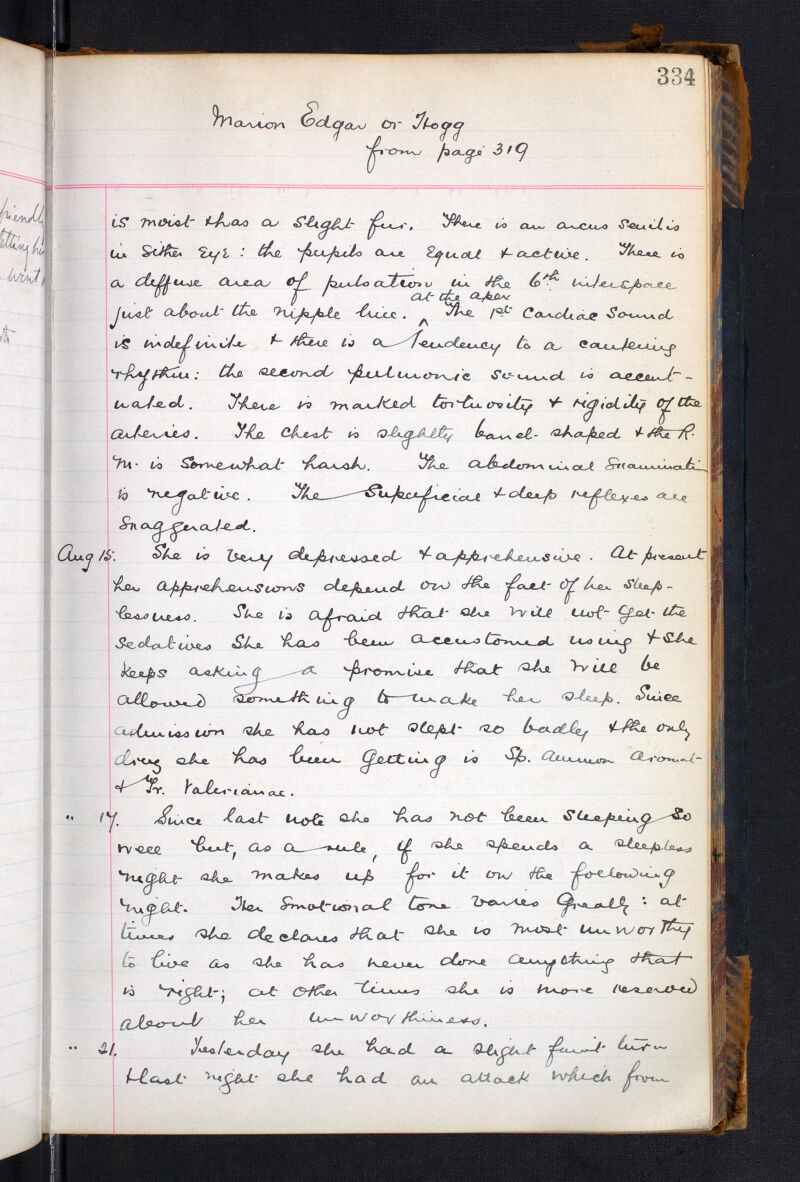 334
Marion Edgar or Hogg
from page 319
is moist & has a slight fur. There is an arcus senilis
in Either Eye : the pupils are Equal & active. There is
a diffuse area of pulsation in the 6th interspace
just about the nipple line. at the apex The 1st Cardiac Sound
is indefinite & there is a tendency to a cantering
rhythm: the second pulmonic sound is accent-
uated. There is marked tortuosity & rigidity of the
arteries. The Chest is slightly barrel-shaped & the R.
M. is Somewhat harsh. The abdominal Examination
is negative. The Superficial & deep reflexes are
Exaggerated.
Aug 15. She is very depressed & apprehensive. At present
her apprehensions depend on the fact of her sleep-
lessness. She is afraid that she will not get the
Sedatives She has been accustomed using & She
keeps asking a promise that she will be
allowed something to make her sleep. Since
admission she has not slept so badly & the only
drug she has been getting is Sp. Ammon Aromat-
& Tr. Valerianae.
" 17. Since last note she has not been sleeping so
well but, as a rule, if she spends a sleepless
night she makes up for it on the following
night. Her Emotional tone varies Greatly : at
times she declares that she is most unworthy
to live as she has never done anything that
is right; at other times she is more reserved
about her unworthiness.
" 21. Yesterday she had a slight faint turn
& last night she had an attack which from
friendly
getting her
went